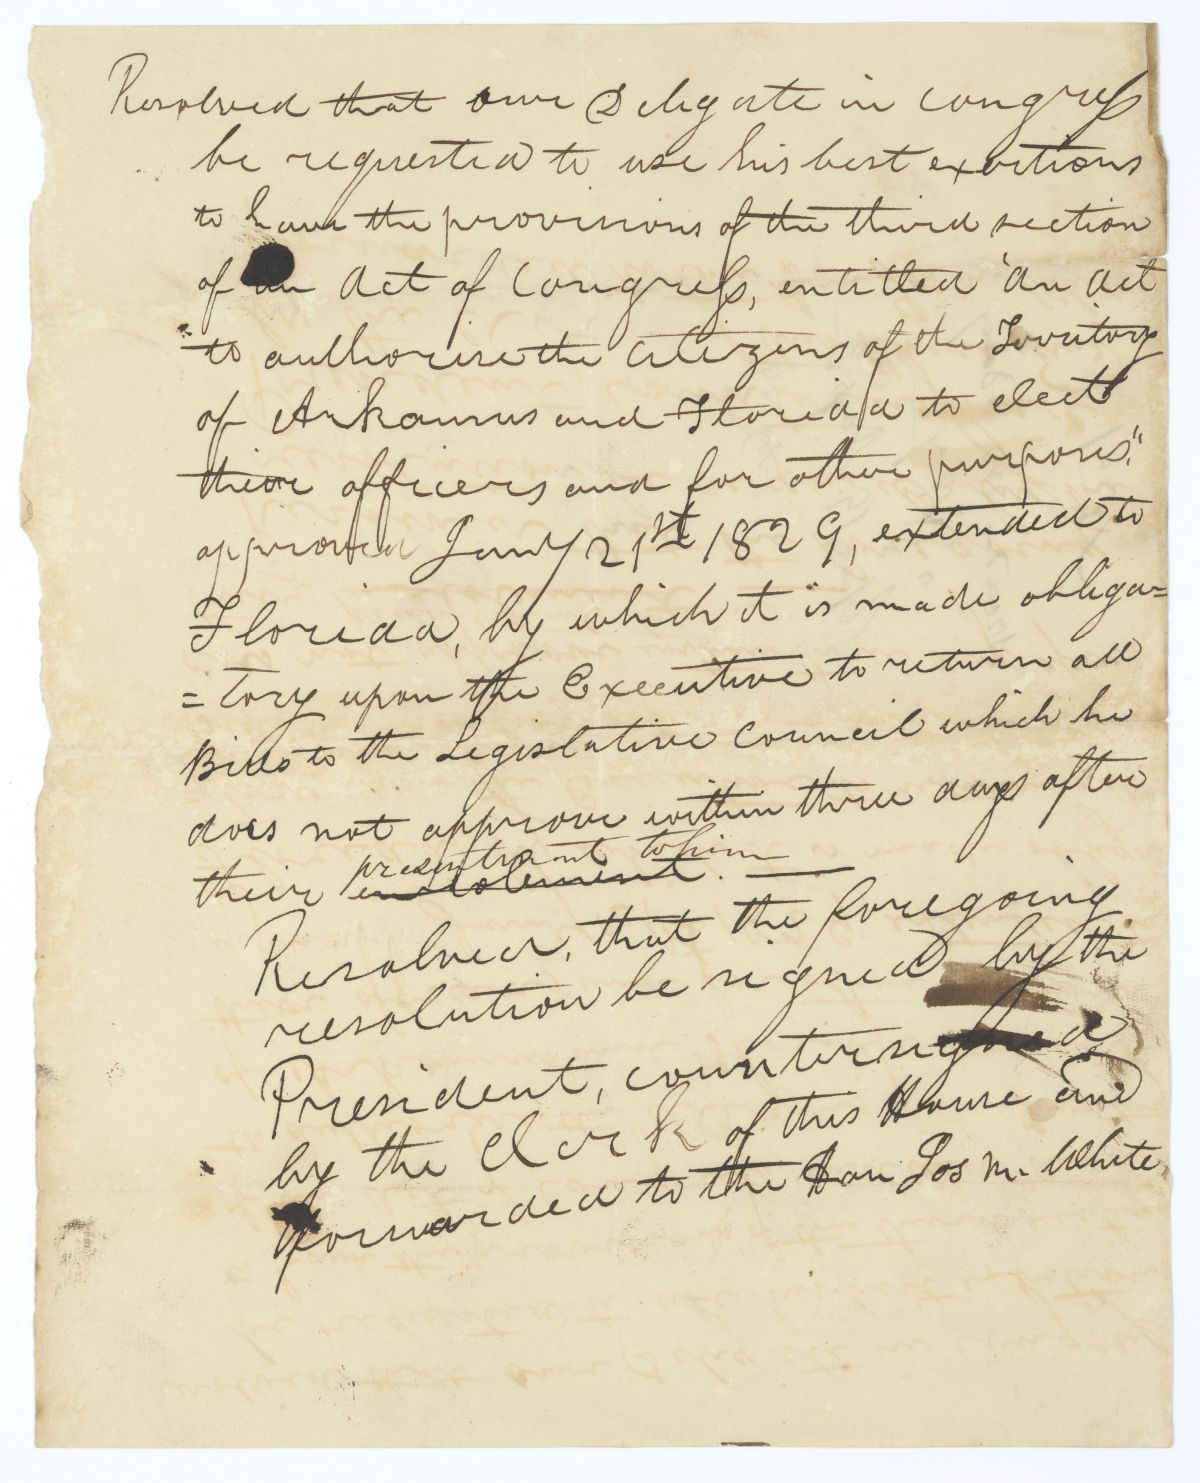 Resolved that our Delegate in Congress
be requested to use his best exertions
to have the provisions of the third section
of an Act of Congress, entitled "An Act
to authorise the citizens of the Territory
of Arkansas and Florida to elect
their officers and for other purposes,"
approved Jany 21st 1829, extended to
Florida, by which it is made obliga=
=tory upon the Executive to return all
Bills to the Legislative Council which he
does not approve within three days after
presentment to him
their enrolement. —
Resolved, that the foregoing
resolution be signed by the
President, countersigned
by the Clerk of this House and
forwarded to the Hon Jos M. White